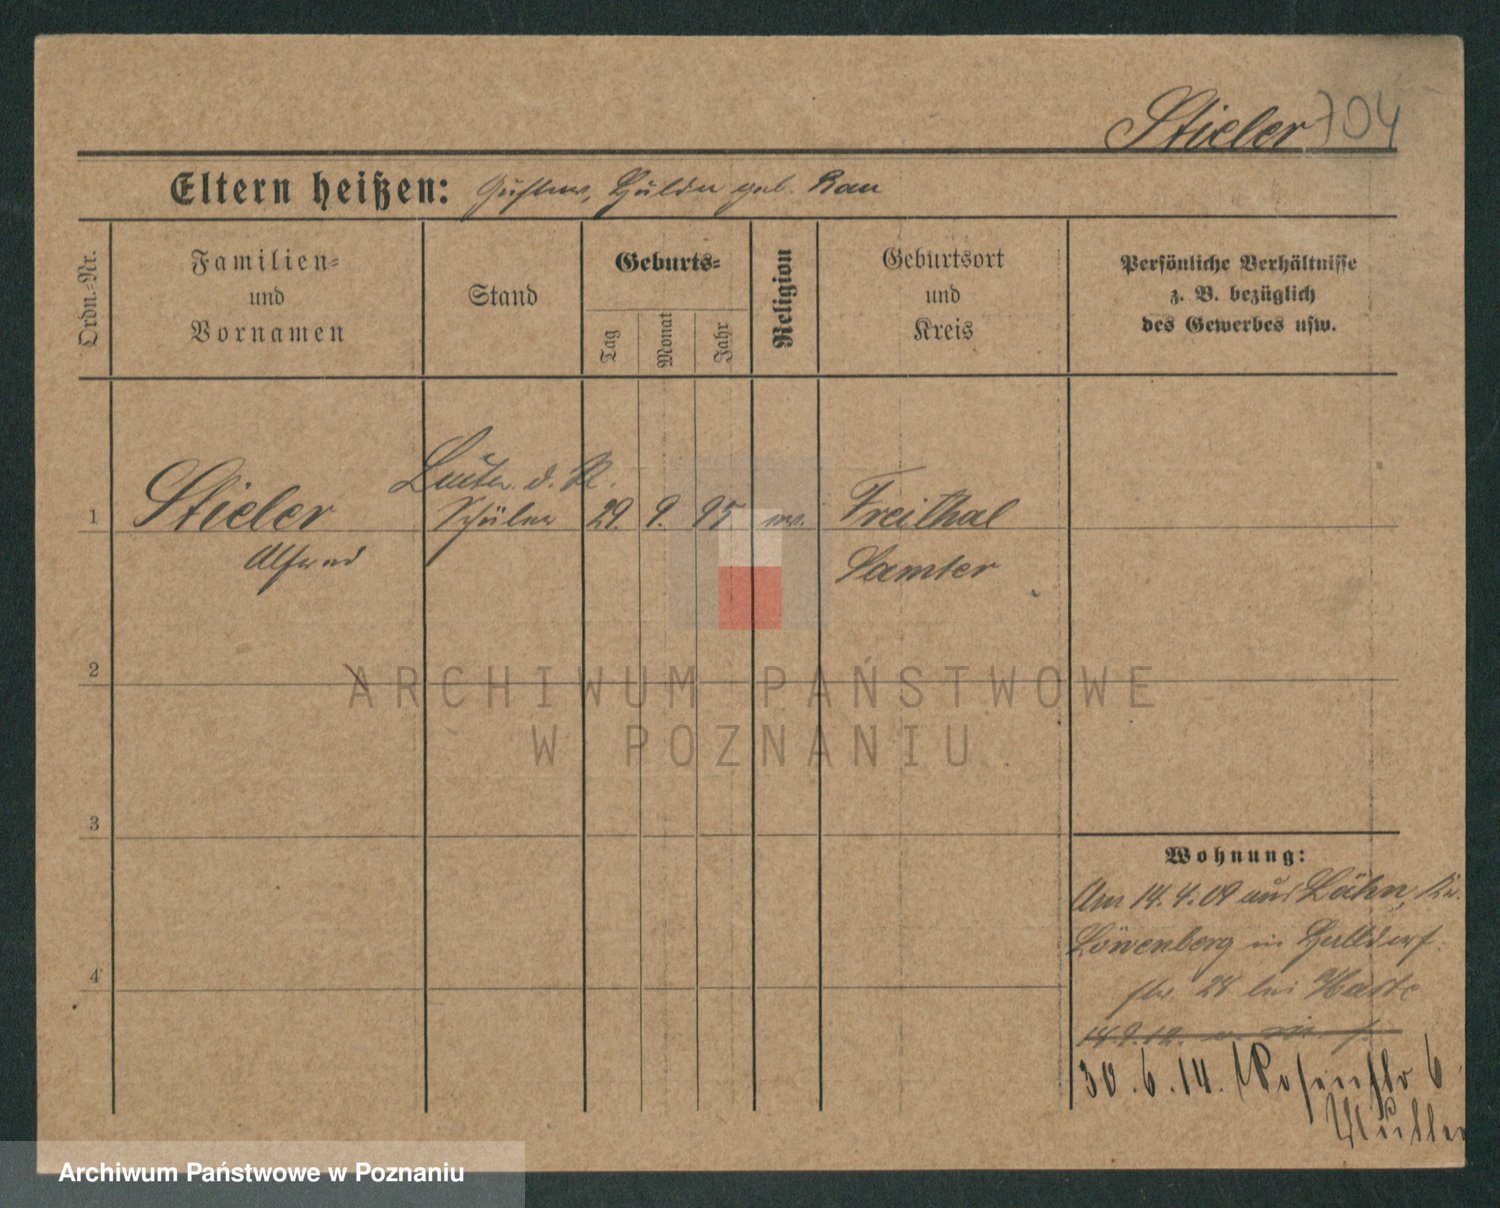 Stieler 704
Eltern heißen: Gustav, Hulda geb. Rau
Ordn.-Nr.
Familien-
und
Vornamen
Stand
Geburts-
Tag
Monat
Jahr
Religion
Geburtsort
und
Kreis
Persönliche Verhältnisse
z. B. bezüglich
des Gewerbes usw.
Leutn. d. R.
1 Stieler Schüler 29. 9. 95 ev. Freithal
Alfred Samter
2
3
4
Wohnung:
Am 14.4.09 aus Lähn, Kr.
Löwenberg in
str. 28 bei
30.6.14. Posenstr 6
Mutter
ARCHIWUM PAŃSTWOWE
W POZNANIU
Archiwum Państwowe w Poznaniu